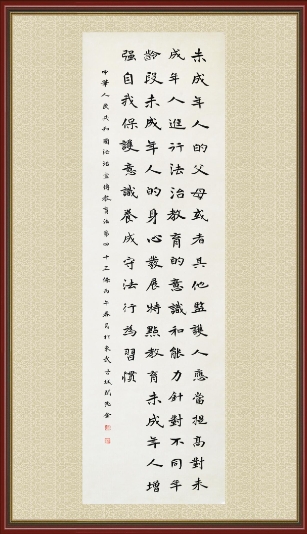 未成年人的父母或者其他監護人應當提高對未
成年人進行法治教育的意識和能力針對不同年
齡段未成年人的身心發展特點教育未成年人增
強自我保護意識養成守法行為習慣
中華人民共和國法治宣傳教育法第四十三條丙午春月於東武